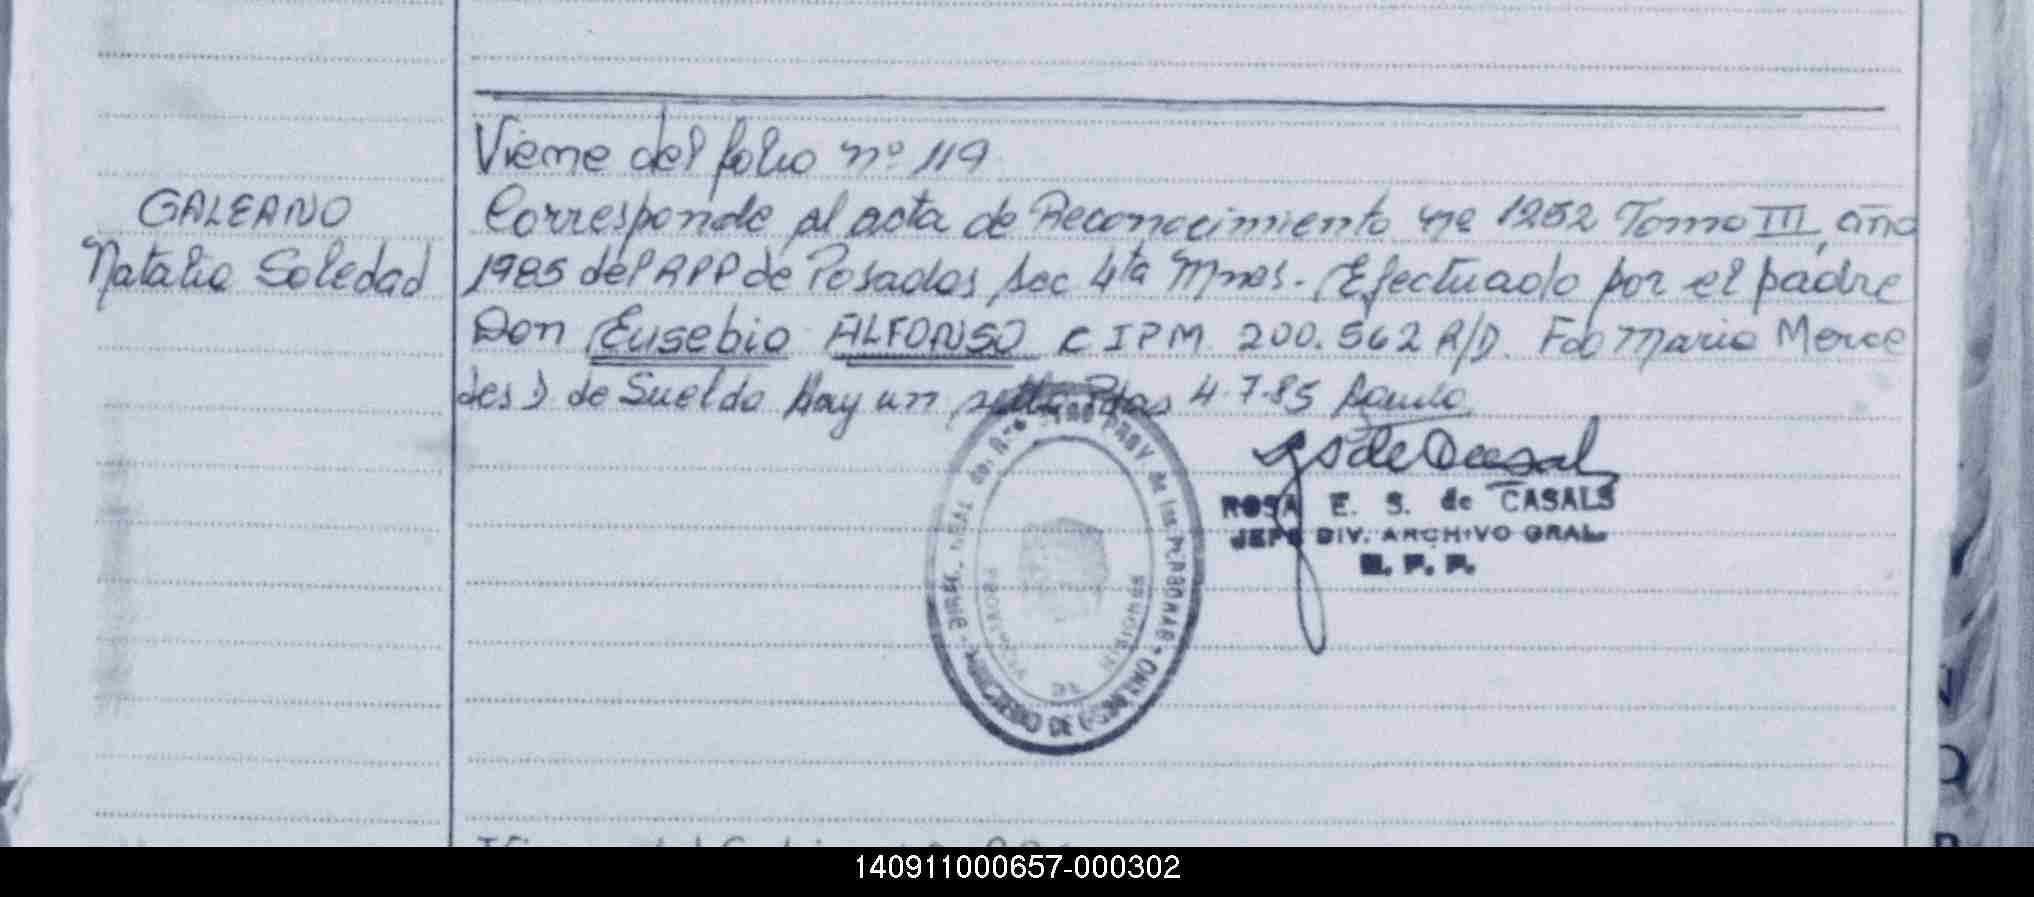 Viene del folio nº 119
GALEANO
Natalia Soledad
Corresponde al acta de Reconocimiento nº 1252 Tomo III, año
1985 del RPP de Posadas Sec 4ta Mnes. Efectuado por el padre
Don Eusebio ALFONSO C I P M 200.562 R/D. Fdo Maria Merce
des D de Sueldo Hay un sello Pdas 4-7-85
ROSA E. S. de CASALS
JEFE DIV. ARCHIVO GRAL.
R. P. P.
PROV de las PERSONAS
MINISTERIO DE GOBIERNO
PROVINCIA DE MISIONES
140911000657-000302